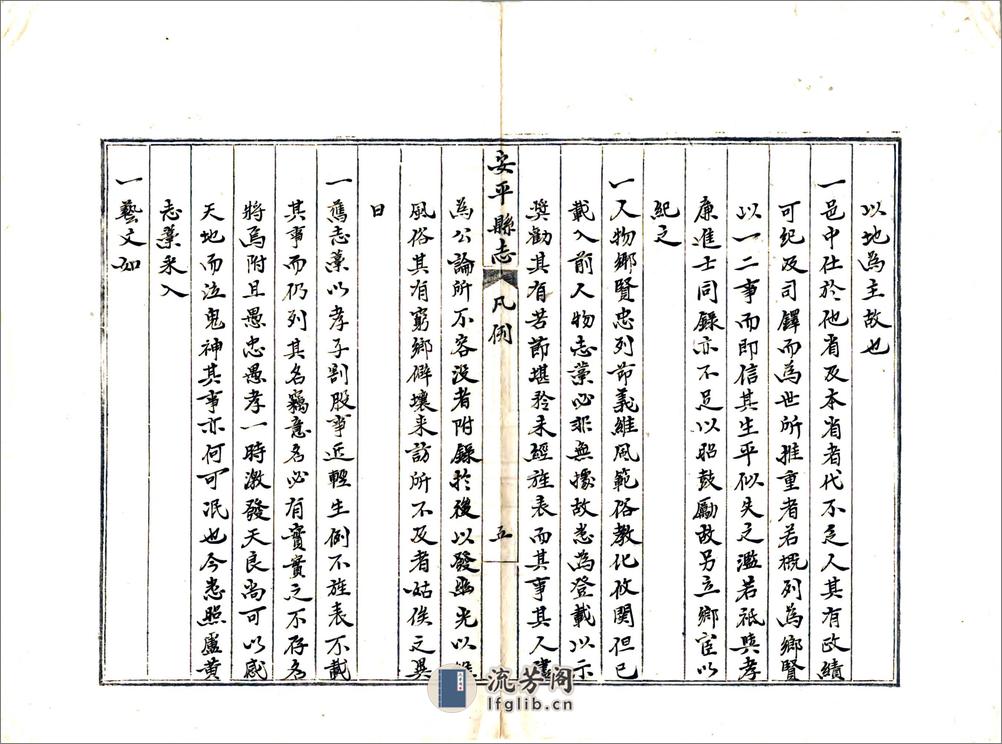 以地為主故也
一邑中仕於他省及本省者代不乏人其有政績
可紀及司鐸而為世所推重者若概列為鄉賢
以一二事而即信其生平似失之濫若祗與孝
廉進士同錄亦不足以昭鼓勵故另立鄉宦以
紀之
一人物鄉賢忠列節義維風範俗教化攸関但已
載入前人物志藁必非無據故悉為登載以示
奨勸其有苦節堪矜未經旌表而其事其人
安平縣志 凡例 五
為公論所不容没者附錄扵後以發幽光以
風俗其有窮鄉僻壤来訪所不及者姑俟之異
日
一舊志藁以孝子割股事近輕生例不旌表不載
其事而仍列其名竊意名必有實實之不存名
將焉附且愚忠愚孝一時激發天良尚可以感
天地而泣鬼神其事亦何可泯也今悉照盧黄
志藁采入
一藝文如
流芳阁
lfglib.cn